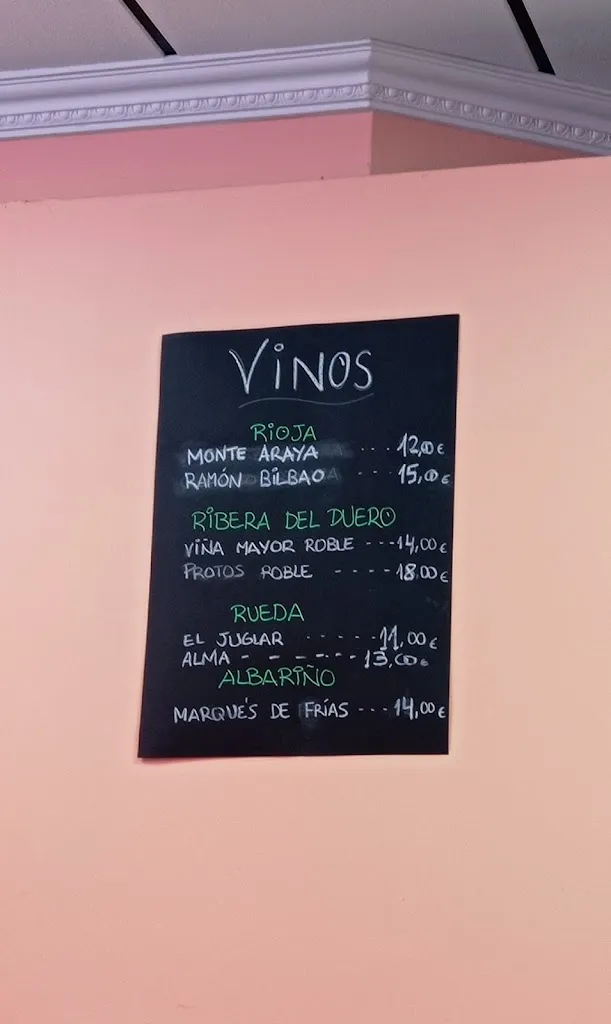 VINOS
RIOJA
MONTE ARAYA ... 12,00 €
RAMÓN BILBAO --- 15,00 €
RIBERA DEL DUERO
VIÑA MAYOR ROBLE ---14,00 €
PROTOS ROBLE ---- 18.00 €
RUEDA
EL JUGLAR ----- 11,00 €
ALMA - - - --- 13,00 €
ALBARIÑO
MARQUÉS DE FRÍAS --- 14,00 €